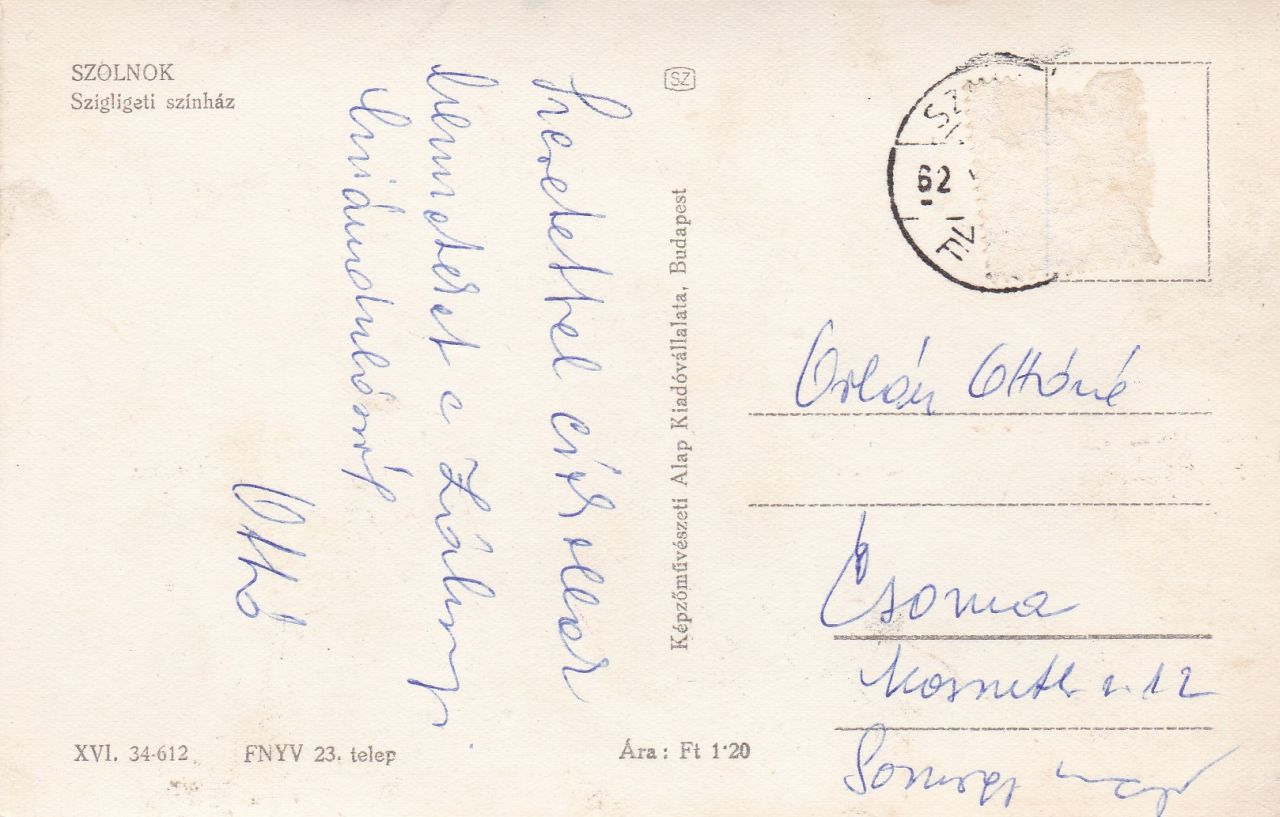 SZOLNOK
Szigligeti színház
Szeretettel csókollak
benneteket a
kirándulásról
Ottó
SZ
Képzőművészeti Alap Kiadóvállalata, Budapest
SZ
62
Orbán Ottóné
Csoma
Kossuth u. 12
Somogy megye
XVI. 34-612 FNYV 23. telep Ára: Ft 1·20